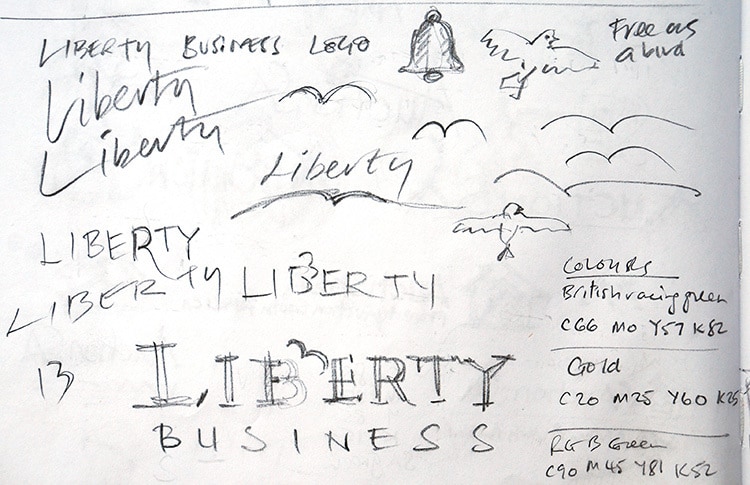 LIBERTY BUSINESS LOGO
Free as
a bird
Liberty
Liberty
Liberty
LIBERTY
LIBERTY
LIBERTY
13
LIBERTY
BUSINESS
Colours
British racing green
C66 M0 Y57 K82
Gold
C20 M25 Y60 K25
RGB Green
C90 M45 Y81 K52